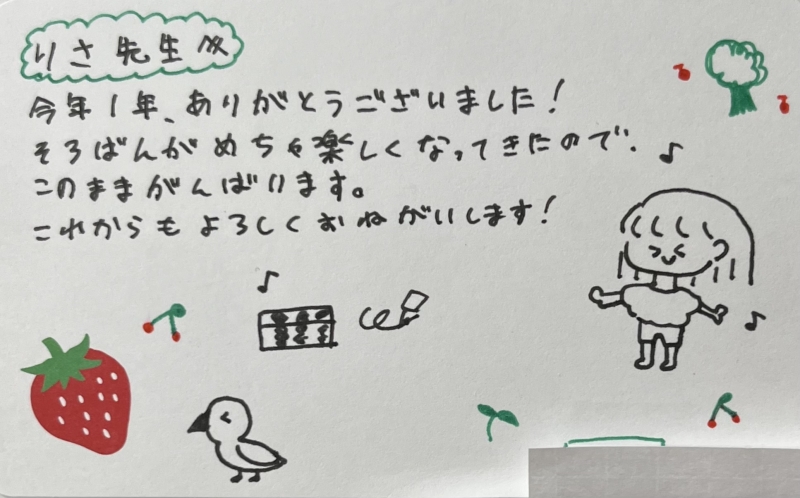 りさ先生へ
今年1年、ありがとうございました!
そろばんがめちゃ楽しくなってきたので、
このままがんばります。
これからもよろしくおねがいします!